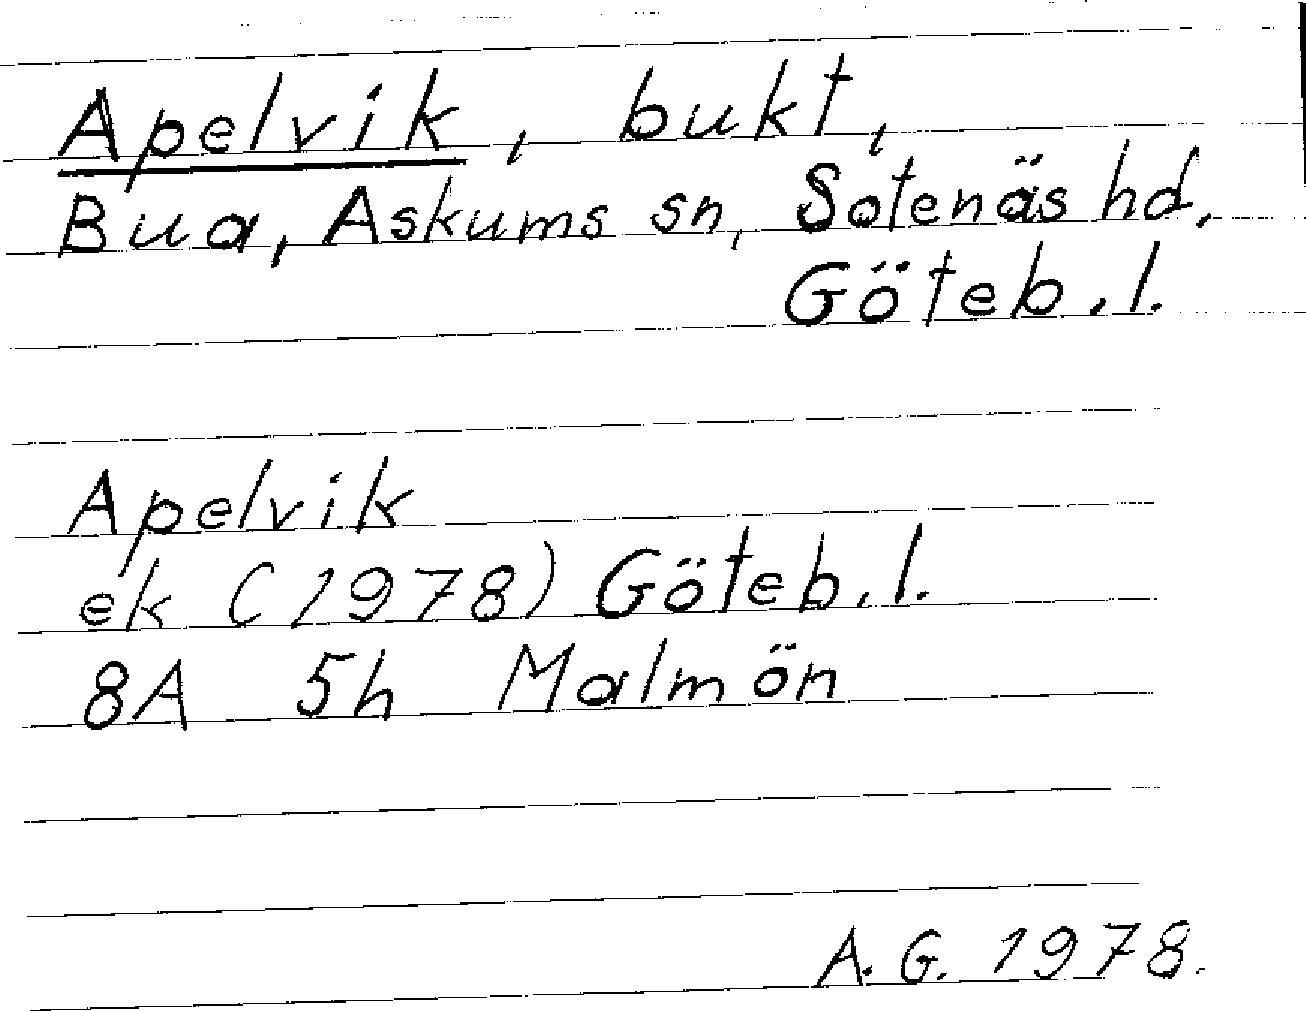 Apelvik, bukt,
Bua, Askums sn, Sotenäs hd,
Göteb. l.
Apelvik
ek (1978) Göteb. l.
8A 5h Malmön
A. G. 1978.